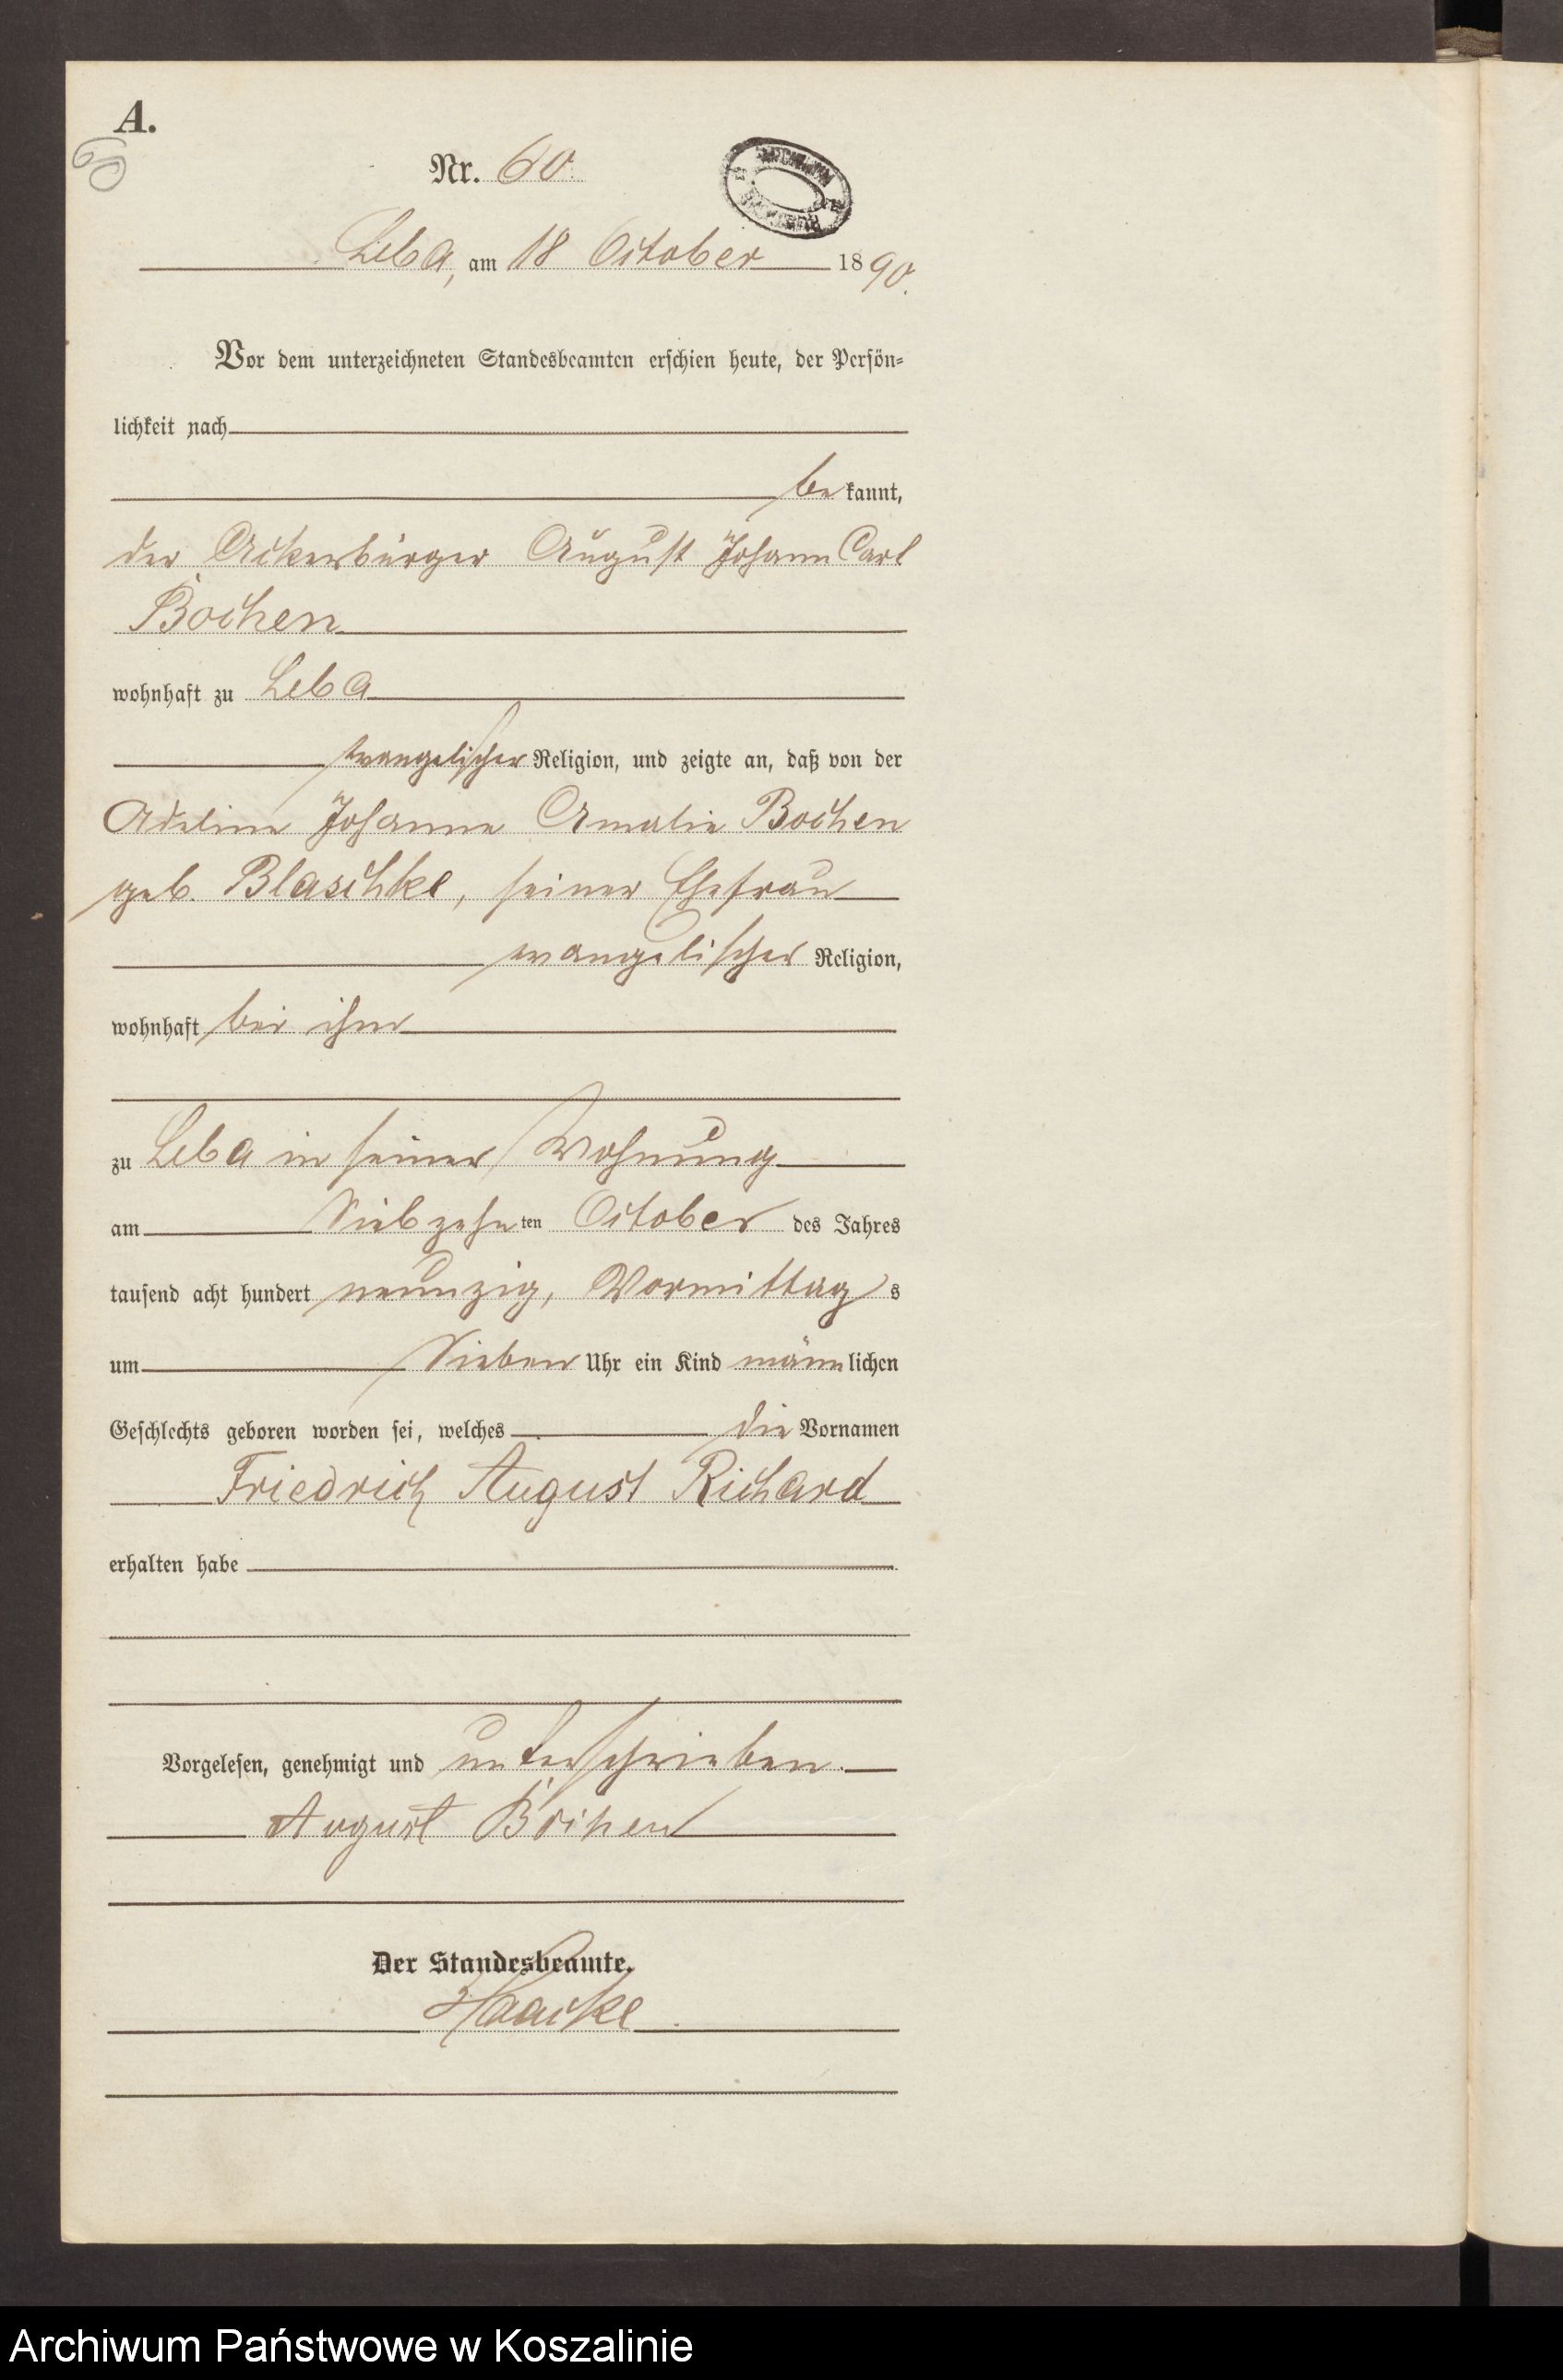 A.
60
Nr. 60.
Leba, am 18 October 1890.
Vor dem unterzeichneten Standesbeamten erschien heute, der Persön-
lichkeit nach
bekannt,
der Ackerbürger August Johann Carl
Bochen
wohnhaft zu Leba
evangelischer Religion, und zeigte an, daß von der
Adeline Johanne Amalie Bochen
geb. Blaschke, seiner Ehefrau
evangelischer Religion,
wohnhaft bei ihm
zu Leba in seiner Wohnung
am Siebzehnten October des Jahres
tausend acht hundert neunzig, Vormittags
um Sieben Uhr ein Kind männlichen
Geschlechts geboren worden sei, welches die Vornamen
Friedrich August Richard
erhalten habe
Vorgelesen, genehmigt und unterschrieben.
August Bochen
Der Standesbeamte.
Haacke
Archiwum Państwowe w Koszalinie